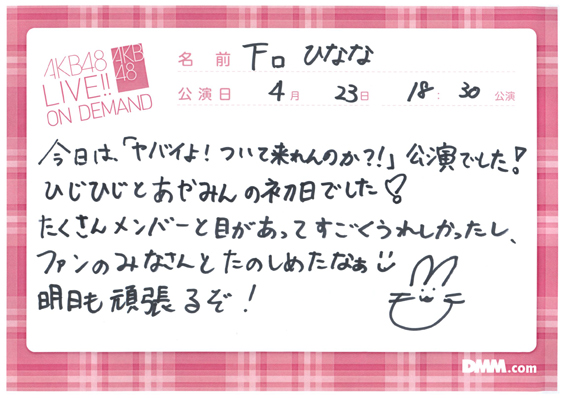 AKB48
LIVE!!
ON DEMAND
AKB
48
名前 下口 ひなな
公演日 4月 23日 18:30 公演
今日は、「ヤバイよ!ついて来れんのか?!」公演でした!
ひじひじとあやみんの初日でした!
たくさんメンバーと目があってすごくうれしかったし、
ファンのみなさんとたのしめたなぁ
明日も頑張るぞ!
DMM.com